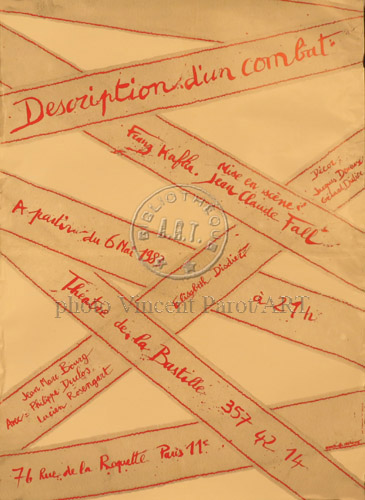 Description d'un combat
Franz Kafka. Mise en scène
Jean Claude Fall
Décor:
Jacques
Gérard Didier
A partir du 6 Mai 1983
BIBLIOTHÈQUE
A.R.T.
Elisabeth Disdier
à 21h
photo Vincent Parot/ART
Théâtre de la Bastille 357 42 14
Jean Marc Bourg
Avec: Philippe Duclos,
Lucien Rosengart
76 Rue de la Roquette Paris 11e